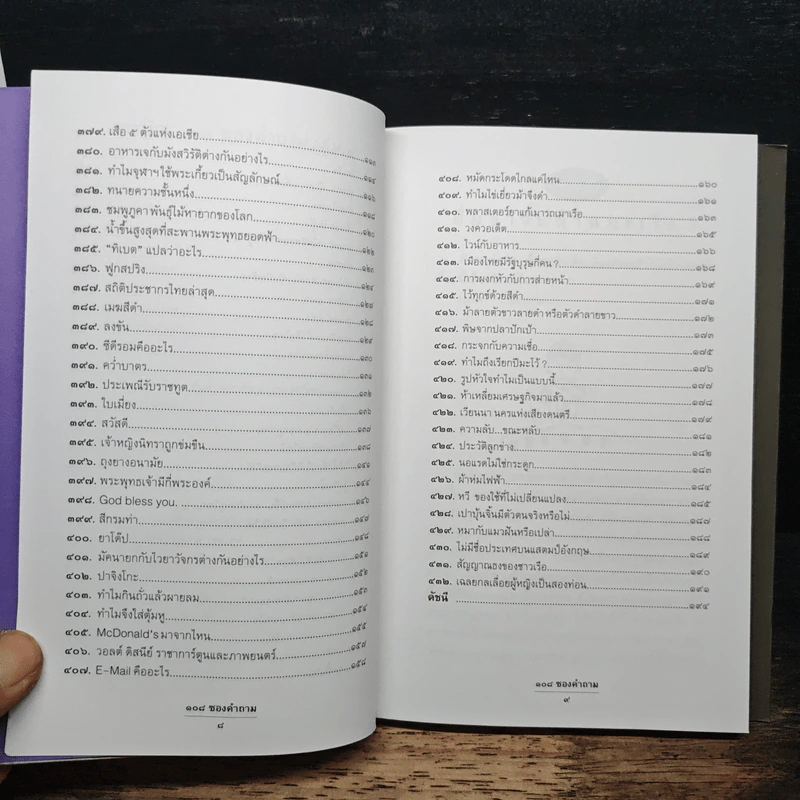 ๓๗๙. เสือ ๕ ตัวแห่งเอเชีย ๑๑๓
๓๘๐. อาหารเจกับมังสวิรัติต่างกันอย่างไร ๑๑๔
๓๘๑. ทำไมจุฬาฯ ใช้พระเกี้ยวเป็นสัญลักษณ์ ๑๑๖
๓๘๒. ทนายความชั้นหนึ่ง ๑๑๘
๓๘๓. ชมพูภูคา พันธุ์ไม้หายากของโลก ๑๒๐
๓๘๔. น้ำขึ้นสูงสุดที่สะพานพระพุทธยอดฟ้า ๑๒๒
๓๘๕. "ทิเบต" แปลว่าอะไร ๑๒๓
๓๘๖. ฟูกสปริง ๑๒๔
๓๘๗. สถิติประชากรไทยล่าสุด ๑๒๘
๓๘๘. เมฆสีดำ ๑๒๙
๓๘๙. ลงขัน ๑๓๐
๓๙๐. ซีดีรอมคืออะไร ๑๓๑
๓๙๑. คว่ำบาตร ๑๓๒
๓๙๒. ประเพณีรับราชทูต ๑๓๖
๓๙๓. ใบเมี่ยง ๑๓๗
๓๙๔. สวัสดี ๑๓๘
๓๙๕. เจ้าหญิงนิทราถูกข่มขืน ๑๔๑
๓๙๖. ถุงยางอนามัย ๑๔๔
๓๙๗. พระพุทธเจ้ามีกี่พระองค์ ๑๔๖
๓๙๘. God bless you. ๑๔๗
๓๙๙. สีกรมท่า ๑๔๘
๔๐๐. ยาโด๊ป ๑๕๑
๔๐๑. มัคนายกกับไวยาวัจกรต่างกันอย่างไร ๑๕๒
๔๐๒. ปาจิงโกะ ๑๕๖
๔๐๓. ทำไมกินถั่วแล้วผายลม ๑๕๔
๔๐๔. ทำไมจึงใส่ตุ้มหู ๑๕๕
๔๐๕. McDonald's มาจากไหน ๑๕๗
๔๐๖. วอลต์ ดิสนีย์ ราชาการ์ตูนและภาพยนตร์ ๑๕๘
๔๐๗. E-Mail คืออะไร
๑๐๘ ซองคำถาม
๘
๔๐๘. หมัดกระโดดไกลแค่ไหน ๑๖๐
๔๐๙. ทำไมไข่เยี่ยวม้าจึงดำ ๑๖๑
๔๑๐. พลาสเตอร์ยาแก้เมารถเมาเรือ ๑๖๓
๔๑๑. วงควอเต็ต ๑๖๕
๔๑๒. ไวน์กับอาหาร ๑๖๖
๔๑๓. เมืองไทยมีรัฐบุรุษกี่คน ? ๑๖๘
๔๑๔. การผงกหัวกับการส่ายหน้า ๑๖๙
๔๑๕. ไว้ทุกข์ด้วยสีดำ ๑๗๑
๔๑๖. ม้าลายตัวขาวลายดำ หรือตัวดำลายขาว ๑๗๒
๔๑๗. พิษจากปลาปักเป้า ๑๗๓
๔๑๘. กระจกกับความเชื่อ ๑๗๕
๔๑๙. ทำไมถึงเรียกปีมะโว้ ? ๑๗๖
๔๒๐. รูปหัวใจทำไมเป็นแบบนี้ ๑๗๗
๔๒๑. ห้าเหลี่ยมเศรษฐกิจมาแล้ว ๑๗๘
๔๒๒. เวียนนา นครแห่งเสียงดนตรี ๑๗๙
๔๒๓. ความลับ...ขณะหลับ ๑๘๑
๔๒๔. ประวัติลูกช่าง ๑๘๒
๔๒๕. นอแรดไม่ใช่กระดูก ๑๘๓
๔๒๖. ผ้าห่มไฟฟ้า ๑๘๔
๔๒๗. หวี ของใช้ที่ไม่เปลี่ยนแปลง ๑๘๕
๔๒๘. เปาบุ้นจิ้นมีตัวตนจริงหรือไม่ ๑๘๗
๔๒๙. หมากับแมวฝันหรือเปล่า ๑๘๘
๔๓๐. ไม่มีชื่อประเทศบนแสตมป์อังกฤษ ๑๘๙
๔๓๑. สัญญาณธงของชาวเรือ ๑๙๐
๔๓๒. เฉลยกลเลื่อยผู้หญิงเป็นสองท่อน ๑๙๑
ดัชนี ๑๙๔
๑๐๘ ซองคำถาม
๙